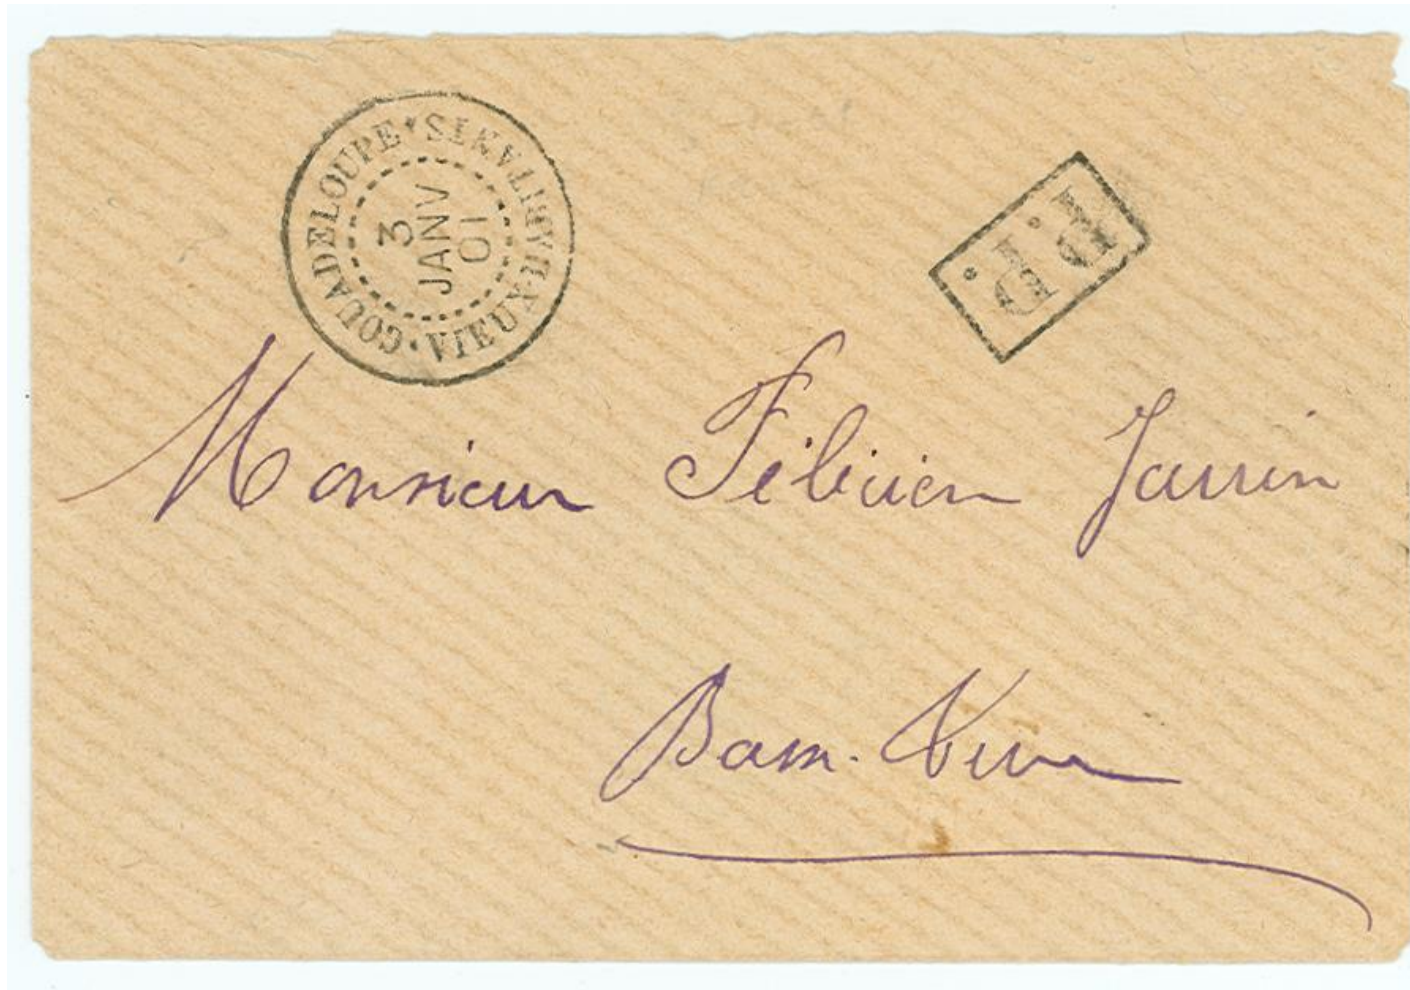 GOUADELOUPE * VIEUX-HABITANTS
3
JANV
01
P.P.
Monsieur Félicien Jarrin